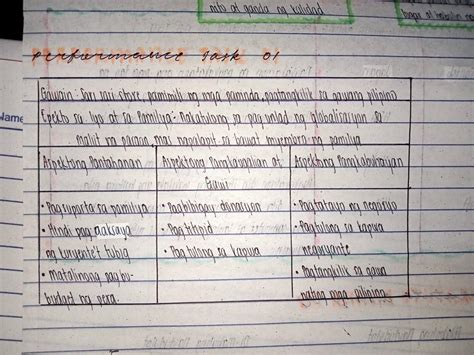 ato at ganda ng kalidad
Performance Task 01
Gawain: Sari sari store, pamimili ng mga pamada, pagtangkilik sa gawang pilipino
Epekto sa lipi at sa Pamilya: Nakatulong sa pag unlad ng globalisasyon sa
maliit na paraan, mas napalapit sa bawat myembro ng pamilya
Aspektong Pantahanan
Aspektong Pangkaugalian at
Gawi
Aspektong Pangkabuhayan
• Pagsuporta sa pamilya
• Hindi pag aaksaya
ng kuryente't tubig
• Matalinong pagbu-
budget ng pera.
• Pagbibigay donasyon
• Pagtitipid
• Pagtulong sa kapwa
• Pagtatayo ng negosyo
• Pagtulong sa kapwa
negosyante
• Pagtangkilik sa gawa
nating mga pilipino
Name